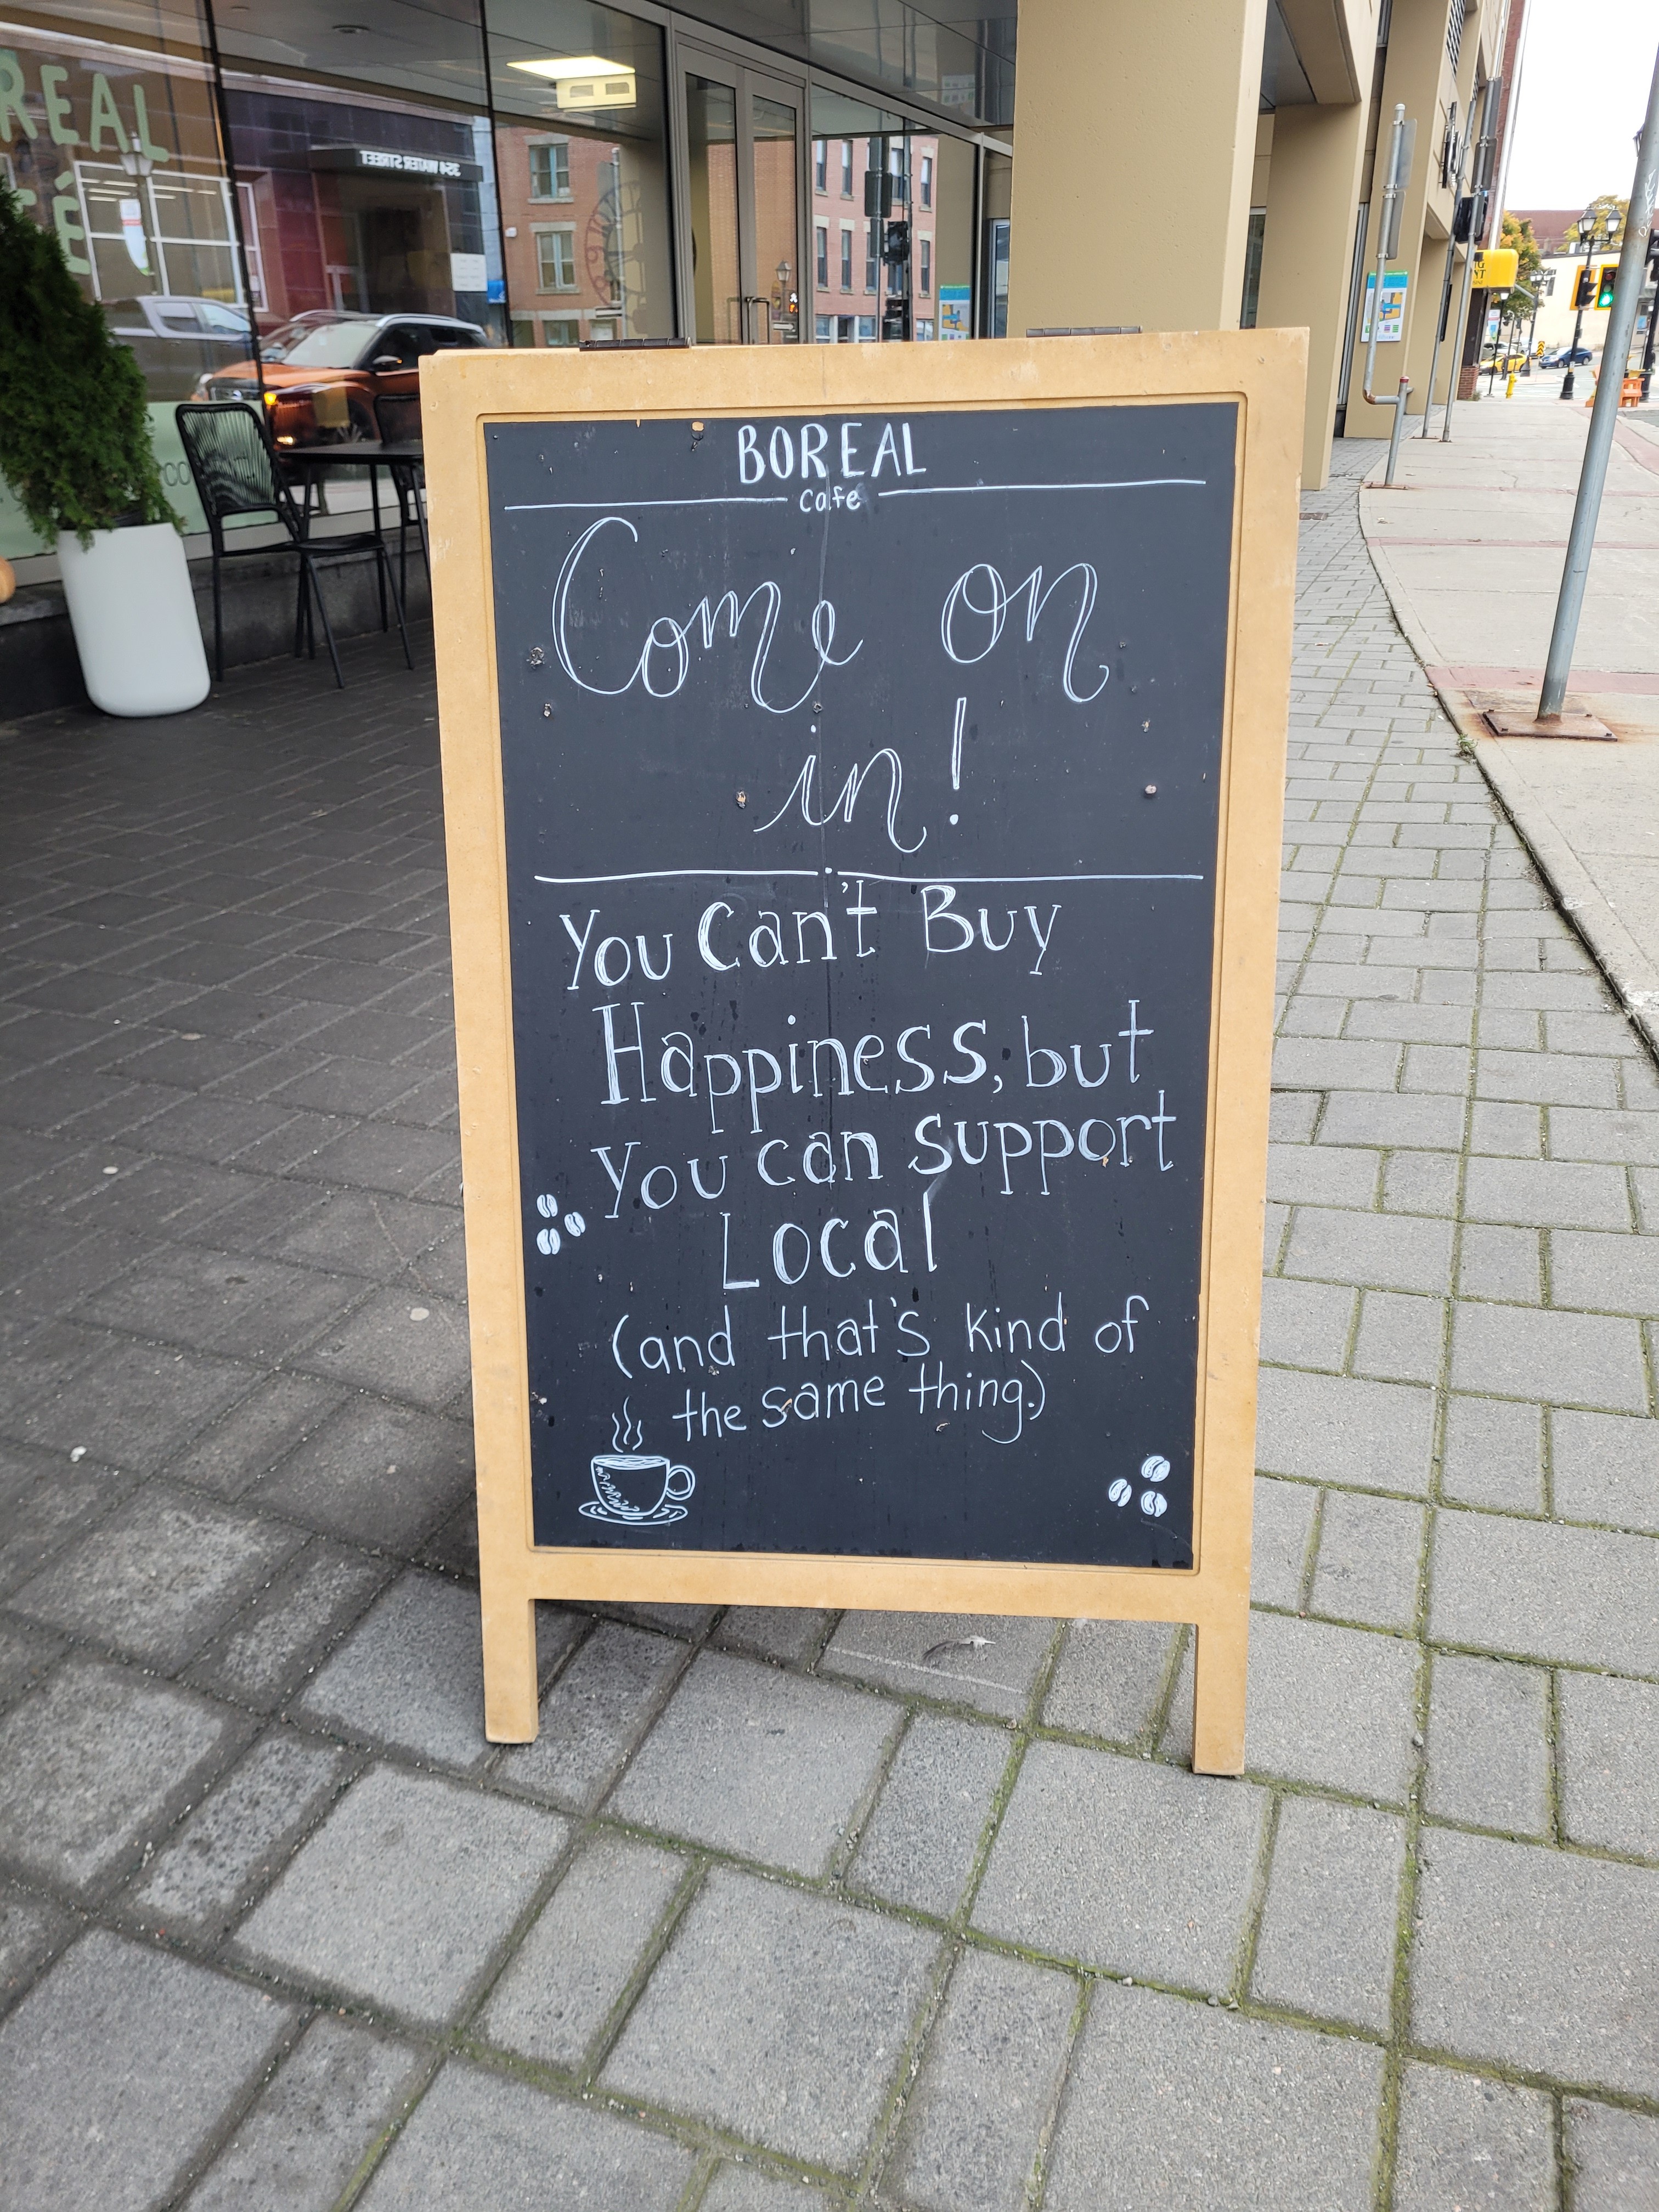 BOREAL
cafe
Come on
in!
You Can't Buy
Happiness, but
You can support
Local
(and that's kind of
the same thing.)
REAL
É
354 WATER STREET